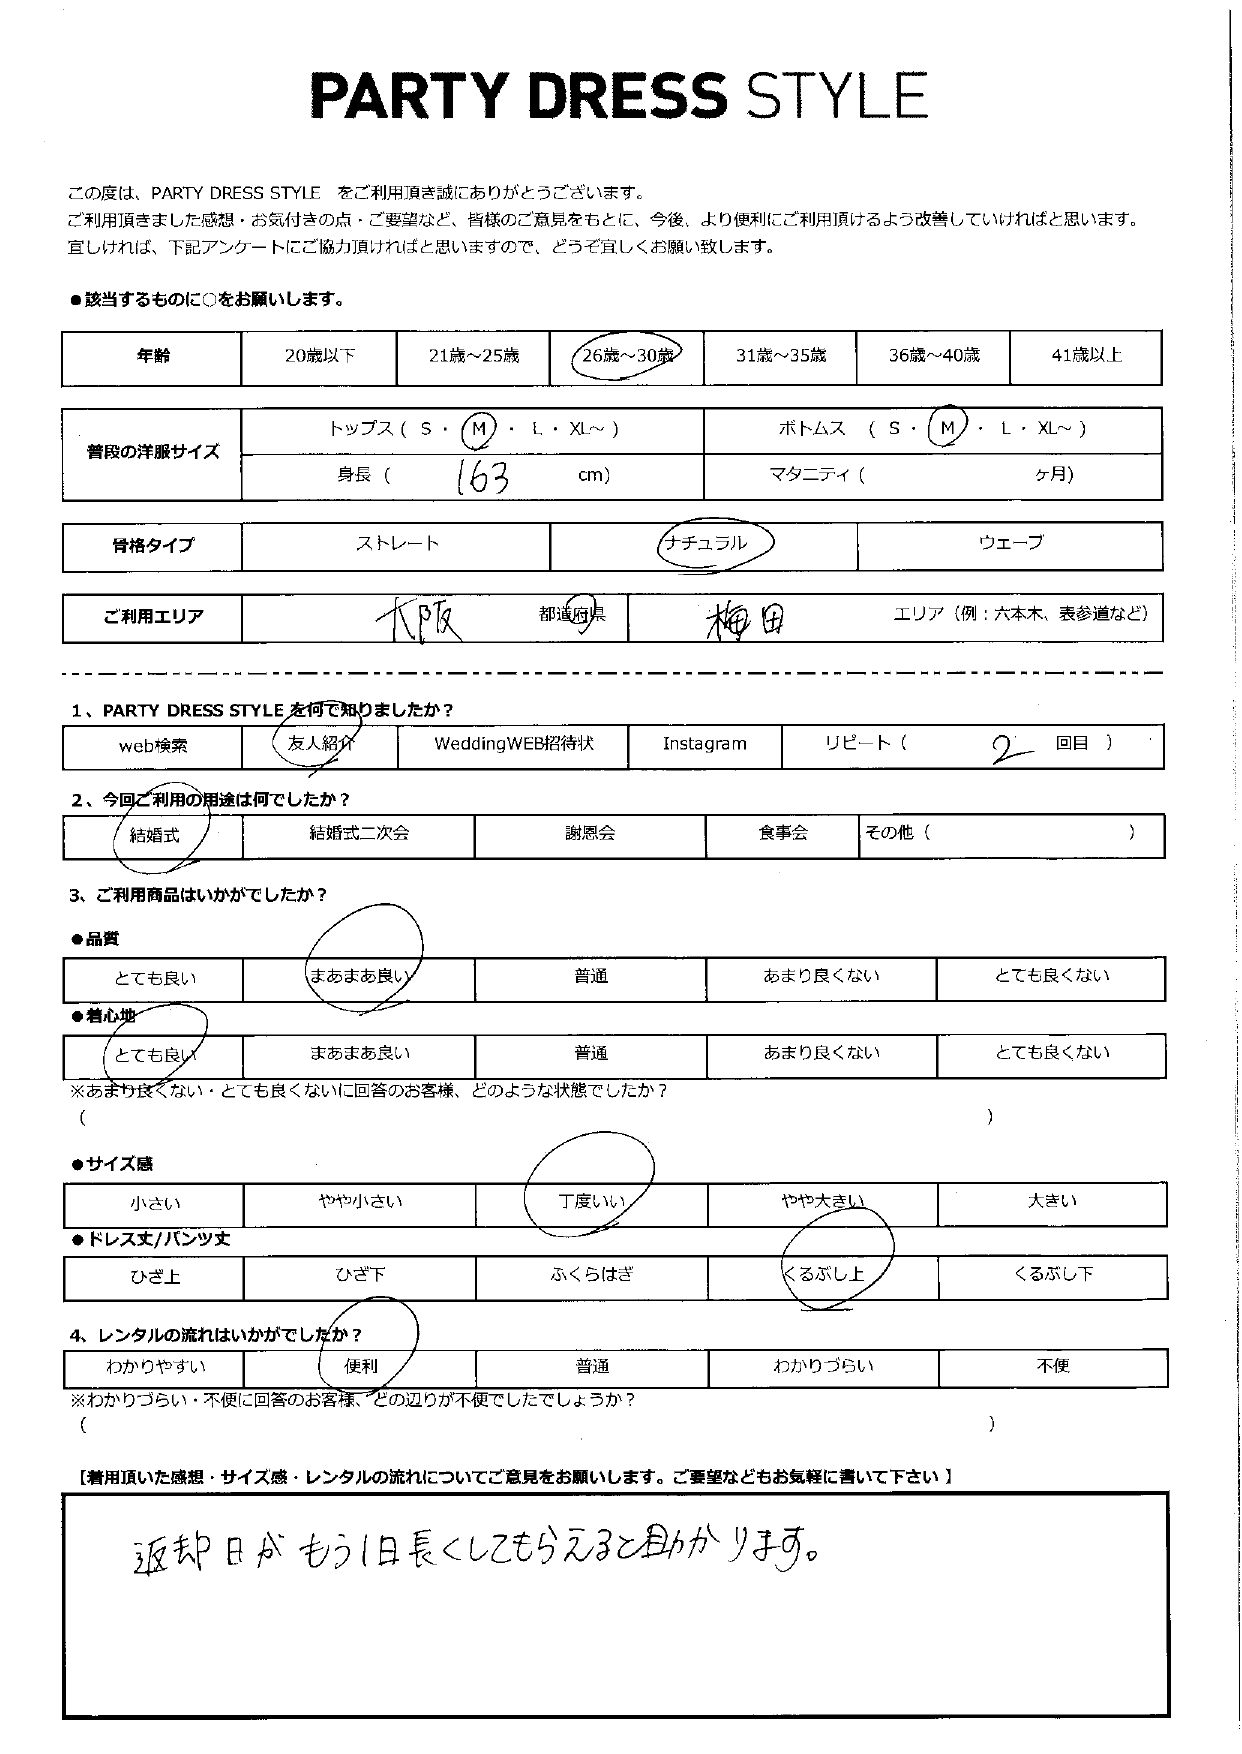 PARTY DRESS STYLE
この度は、PARTY DRESS STYLE をご利用頂き誠にありがとうございます。
ご利用頂きました感想・お気付きの点・ご要望など、皆様のご意見をもとに、今後、より便利にご利用頂けるよう改善していければと思います。
宜しければ、下記アンケートにご協力頂ければと思いますので、どうぞ宜しくお願い致します。
●該当するものに○をお願いします。
年齢 20歳以下 21歳～25歳 26歳～30歳 31歳～35歳 36歳～40歳 41歳以上
普段の洋服サイズ
トップス ( S ・ M ・ L ・ XL～ ) ボトムス ( S ・ M ・ L ・ XL～ )
身長 ( 163 cm) マタニティ ( ヶ月)
骨格タイプ ストレート ナチュラル ウェーブ
ご利用エリア 大阪 都道府県 梅田 エリア（例：六本木、表参道など）
1、PARTY DRESS STYLE を何で知りましたか？
web検索 友人紹介 WeddingWEB招待状 Instagram リピート ( 2 回目 )
2、今回ご利用の用途は何でしたか？
結婚式 結婚式二次会 謝恩会 食事会 その他 ( )
3、ご利用商品はいかがでしたか？
●品質
とても良い まあまあ良い 普通 あまり良くない とても良くない
●着心地
とても良い まあまあ良い 普通 あまり良くない とても良くない
※あまり良くない・とても良くないに回答のお客様、どのような状態でしたか？
( )
●サイズ感
小さい やや小さい 丁度いい やや大きい 大きい
●ドレス丈/パンツ丈
ひざ上 ひざ下 ふくらはぎ くるぶし上 くるぶし下
4、レンタルの流れはいかがでしたか？
わかりやすい 便利 普通 わかりづらい 不便
※わかりづらい・不便に回答のお客様、どの辺りが不便でしたでしょうか？
( )
【着用頂いた感想・サイズ感・レンタルの流れについてご意見をお願いします。ご要望などもお気軽に書いて下さい】
返却日がもう1日長くしてもらえると助かります。